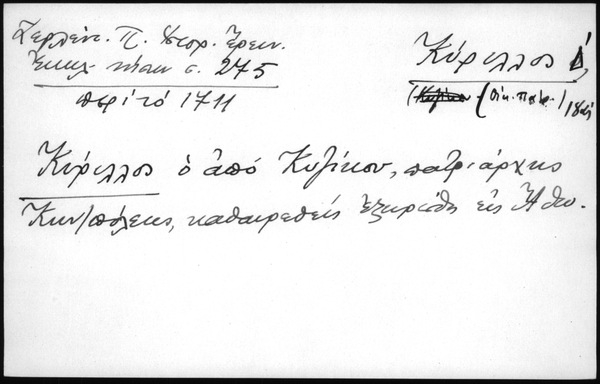 Ζερλέντ. Π. Ιστορ. Έρευν.
Εκκλ. νήσων σ. 275
περί τό 1711
Κύριλλος Δ',
(Οικ. Πατρ.)
Κύριλλος ὁ ἀπό Κυζίκου, πατριάρχης
Κων/πόλεως, καθαιρεθείς ἐξωρίσθη εἰς Ἄθω.